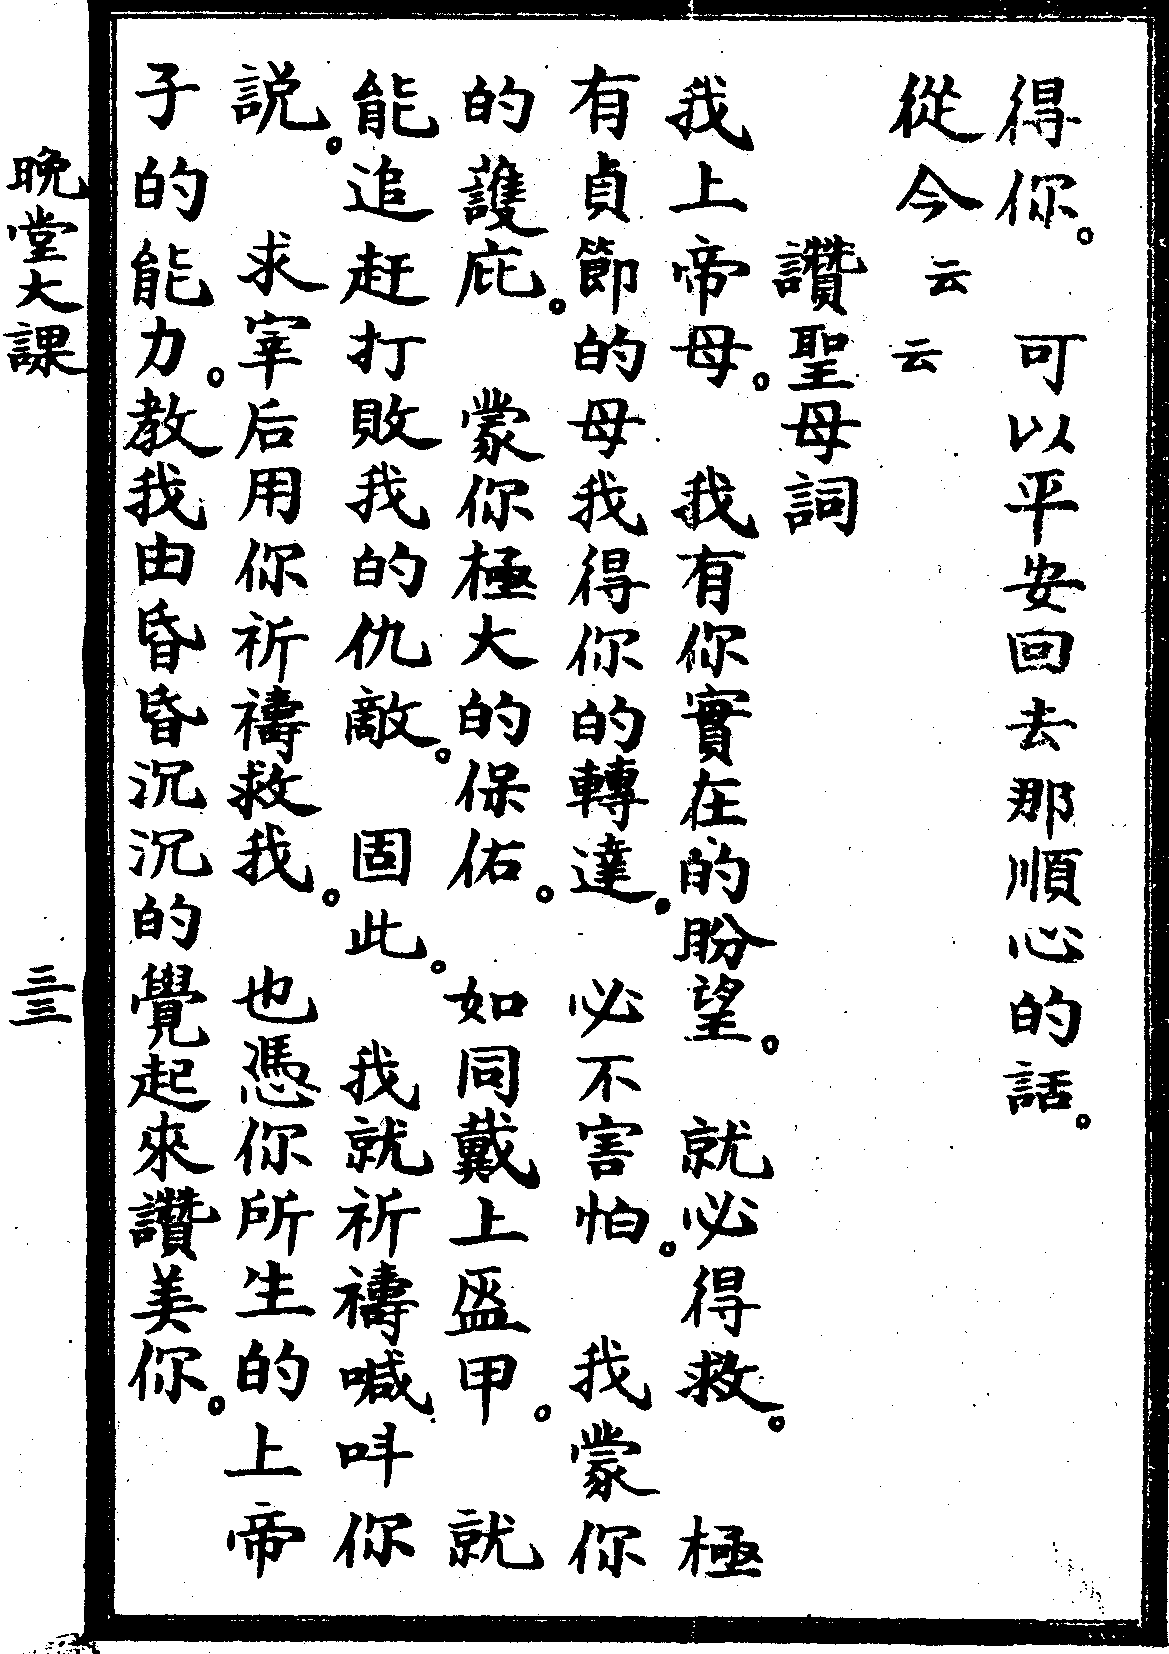 得你。　可以平安回去那順心的話。
從今云云
讚聖母詞
我上帝母。　我有你實在的盼望。　就必得救。　極
有貞節的母我得你的轉達。　必不害怕。　我蒙你
的護庇。　蒙你極大的保佑。　如同戴上盔甲。　就
能追赶打敗我的仇敵。　固此。　我就祈禱喊呌你
説。　求宰后用你祈禱救我。　也憑你所生的上帝
子的能力。教我由昏昏沉沉的覺起來讚美你。
晚堂大課
三三